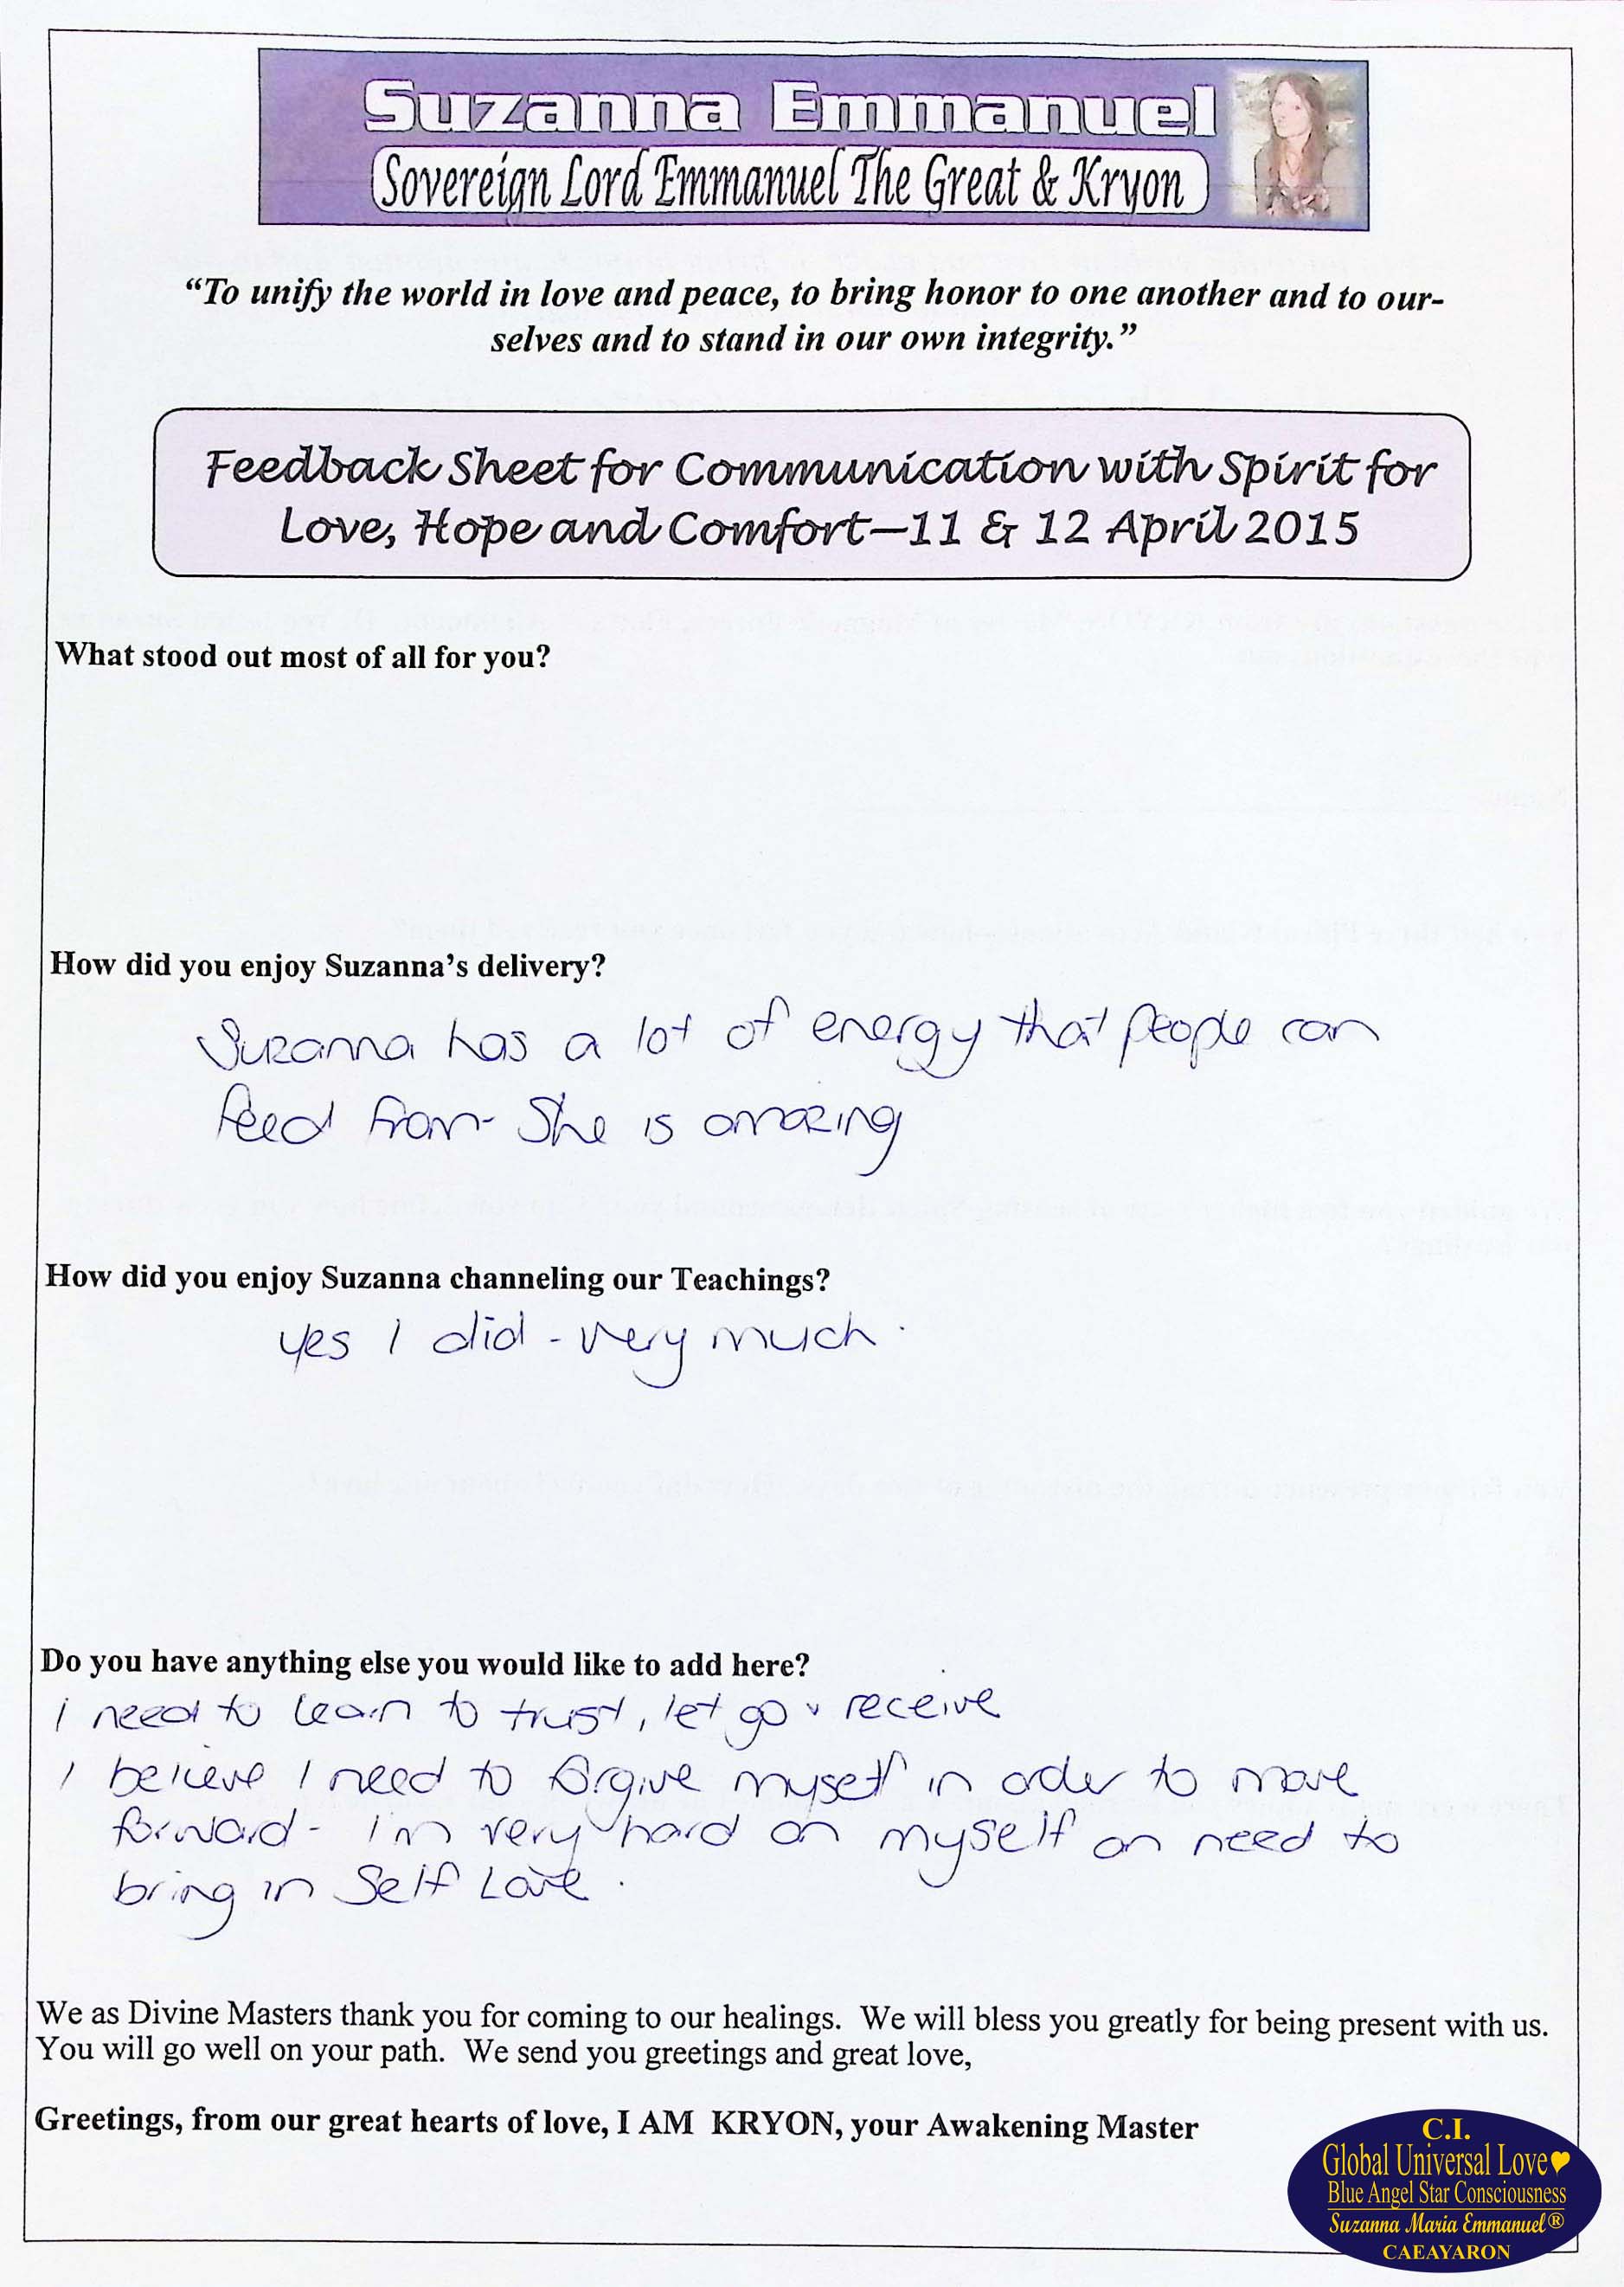 Suzanna Emmanuel
Sovereign Lord Emmanuel The Great & Kryon
“To unify the world in love and peace, to bring honor to one another and to our-
selves and to stand in our own integrity.”
Feedback Sheet for Communication with Spirit for
Love, Hope and Comfort—11 & 12 April 2015
What stood out most of all for you?
How did you enjoy Suzanna’s delivery?
Suzanna has a lot of energy that people can
feed from - She is amazing
How did you enjoy Suzanna channeling our Teachings?
yes I did - very much.
Do you have anything else you would like to add here?
I need to learn to trust, let go & receive
I believe I need to forgive myself in order to move
forward - I'm very hard on myself an need to
bring in Self Love.
We as Divine Masters thank you for coming to our healings.  We will bless you greatly for being present with us.
You will go well on your path.  We send you greetings and great love,
Greetings, from our great hearts of love, I AM  KRYON, your Awakening Master
C.I.
Global Universal Love♥
Blue Angel Star Consciousness
Suzanna Maria Emmanuel®
CAEAYARON